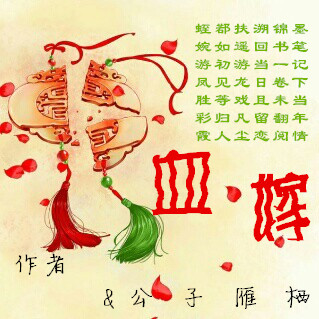 墨笔记下当年情
锦书一卷未翻阅
溯回当日且留恋
扶遥游龙戏凡尘
都如初见等归人
蛭婉游凤胜彩霞
血嫁
作者
&公子雁栖